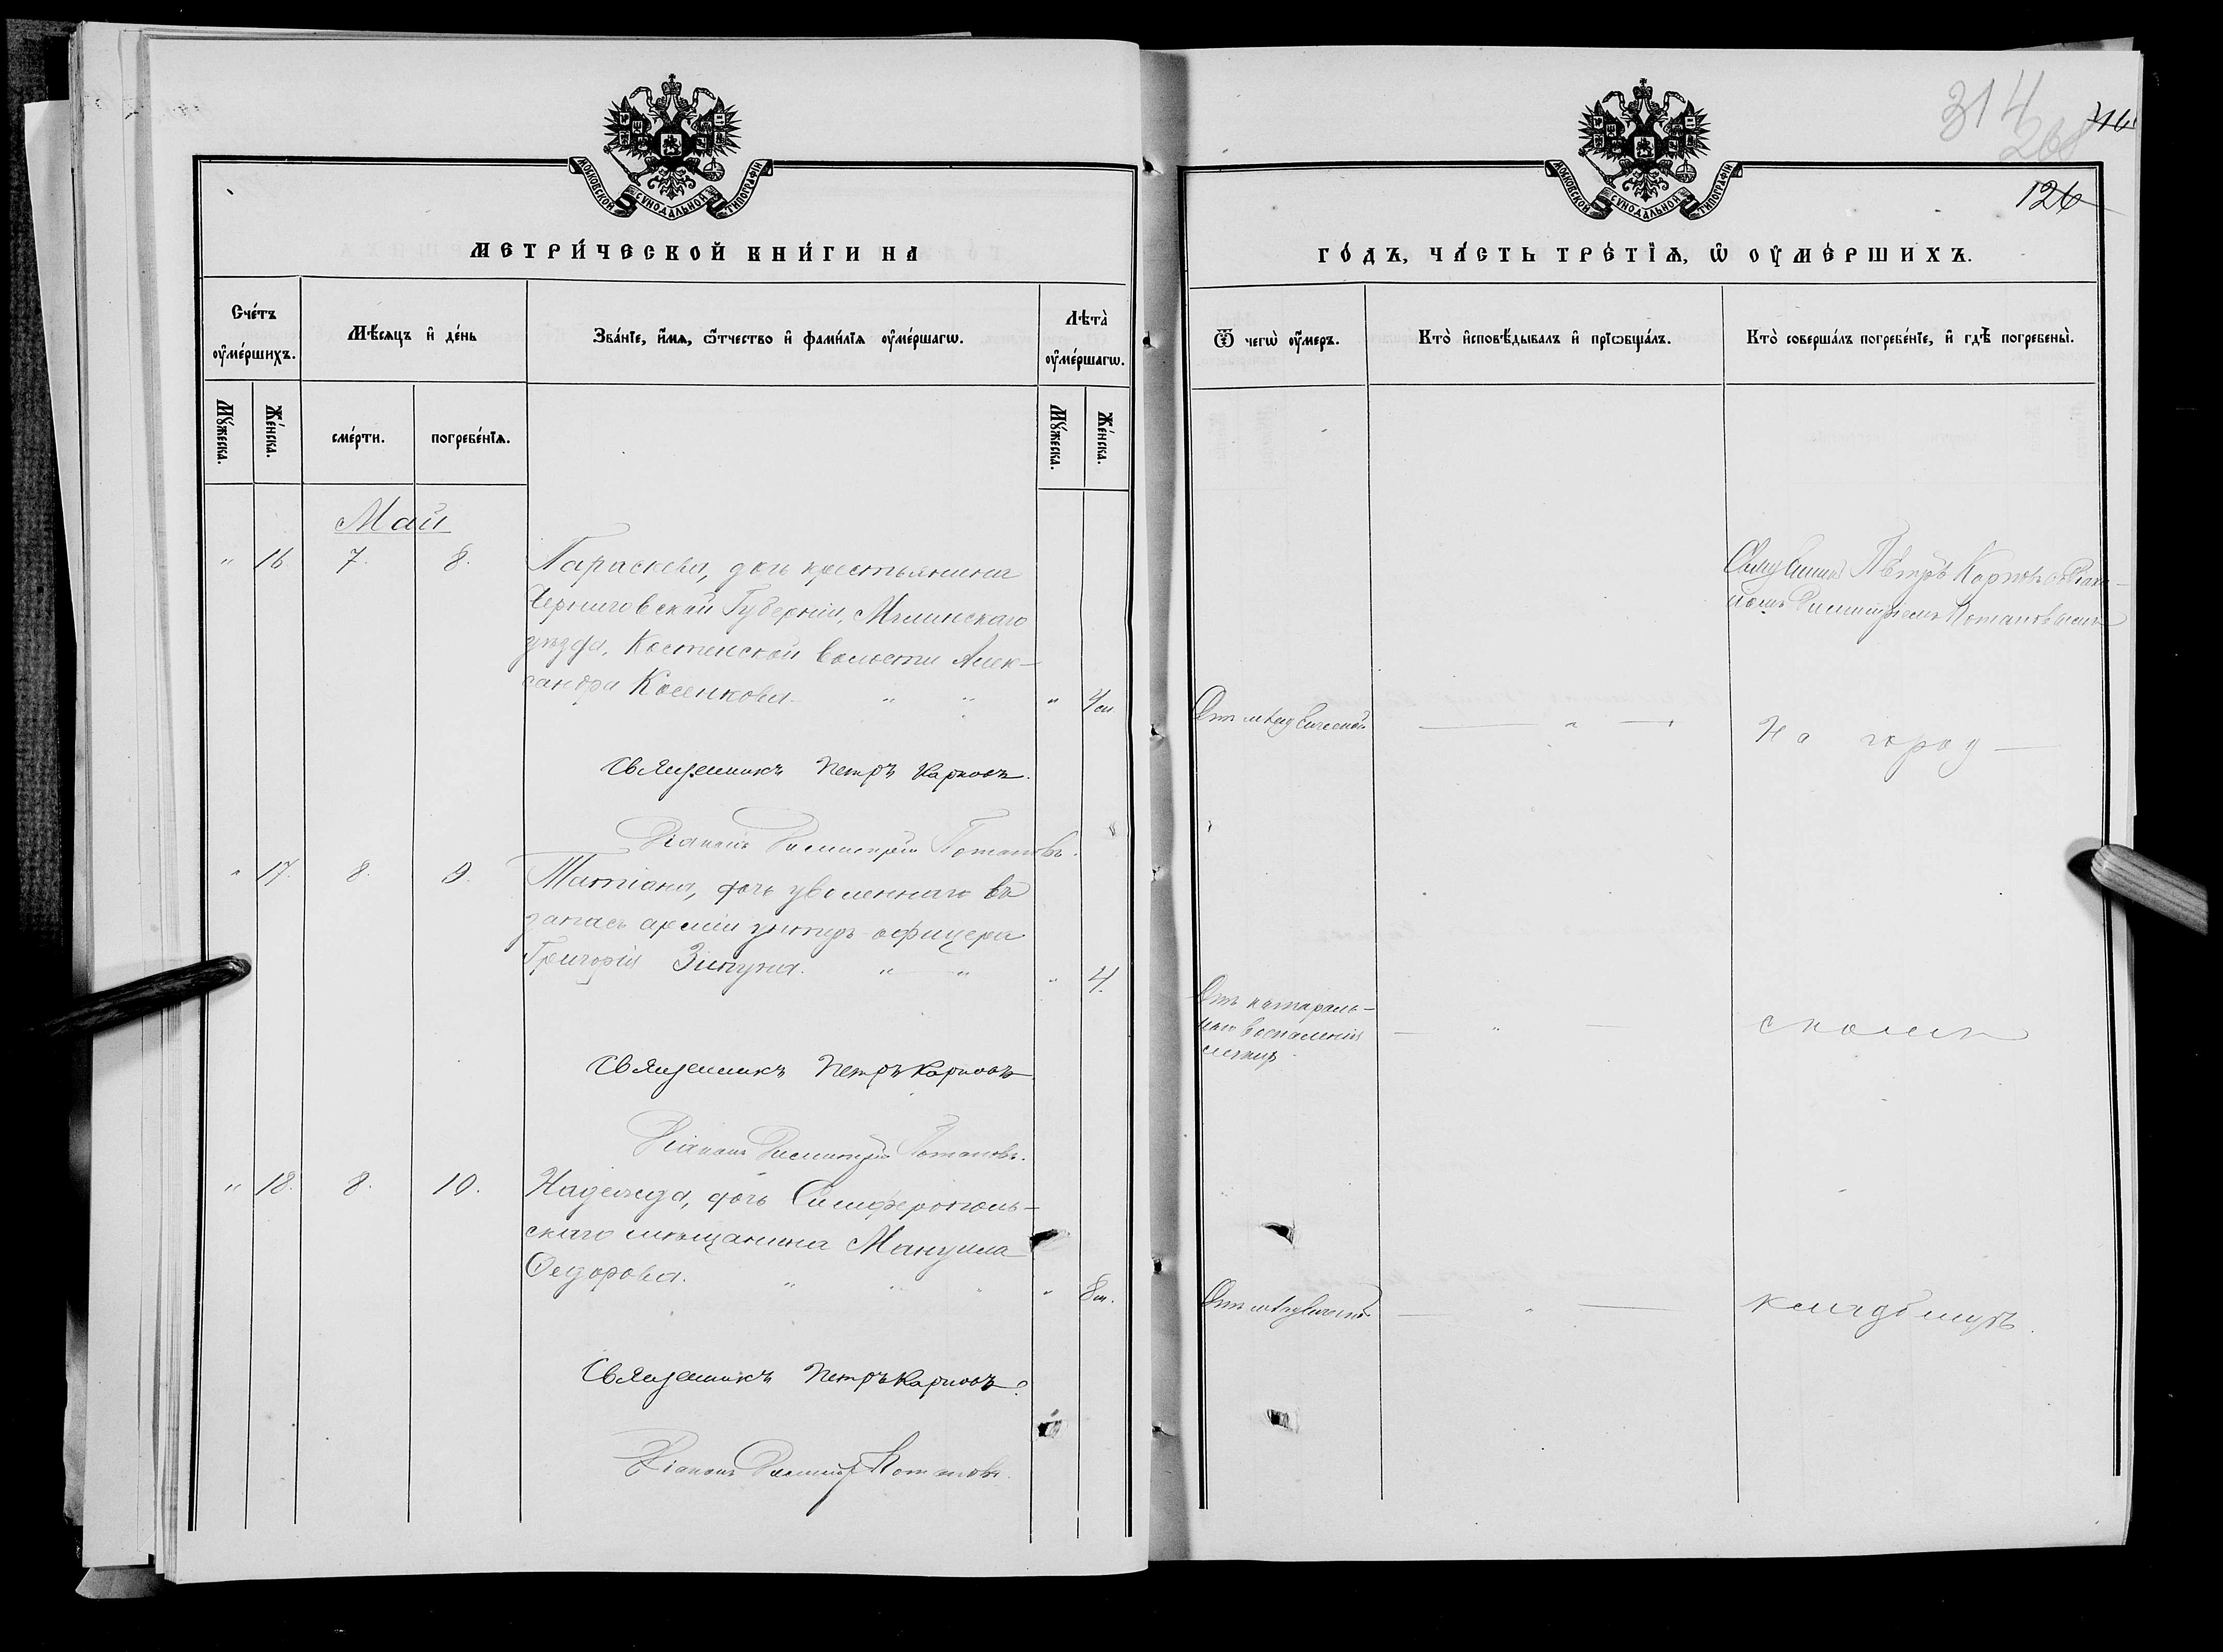 МОСКОВСКОЙ СѴНОДАЛЬНОЙ ТИПОГРАФІИ
МЕТРИ́ЧЕСКОЙ КНИ́ГИ НА
Сче́тъ ᲂу҆ме́ршихъ.
Мѣ́сяцъ и҆ де́нь
Зва́нїе, и҆́мѧ, ѻ҆́тчество и҆ фами́лїѧ ᲂу҆ме́ршагѡ.
Лѣта̀ ᲂу҆ме́ршагѡ.
Мꙋ́жеска.
Же́нска.
сме́рти.
погребе́нїѧ.
Мꙋ́жеска.
Же́нска.
Май
" 16 7. 8. Параскева, дочь крестьянина
Черниговской Губерніи, Мглинскаго
уѣзда, Костенской волости Алек-
сандра Косенкова " " " 4 м.
Священникъ Петръ Карповъ.
Діаконъ Димитрій Потаповъ.
" 17. 8. 9. Татіана, дочь уволеннаго въ
запасъ арміи унтеръ-офицера
Григорія Зипуна. " " " 4.
Священникъ Петръ Карповъ
Діаконъ Димитрій Потаповъ.
" 18. 8. 10. Надежда, дочь Симферополь-
скаго мѣщанина Мануила
Ѳедорова. " " " " 8 м.
Священникъ Петръ Карповъ.
Діаконъ Димитрій Потаповъ.
314
268
116
126
МОСКОВСКОЙ СѴНОДАЛЬНОЙ ТИПОГРАФІИ
ГО́ДЪ, ЧА́СТЬ ТРЕ́ТЇѦ, Ѡ҆ ОУ҆МЕ́РШИХЪ.
Ѿ чегѡ̀ ᲂу҆́меръ.
Кто̀ и҆сповѣ́дывалъ и҆ прїѡбща́лъ.
Кто̀ соверша́лъ погребе́нїе, и҆ гдѣ̀ погребены̀.
Священникъ Петръ Карповъ съ Діако-
номъ Димитріемъ Потаповымъ
Отъ младенческой " На город-
Отъ катараль-
наго воспаленія
легкихъ " скомъ
Отъ младенческой " кладбищѣ.